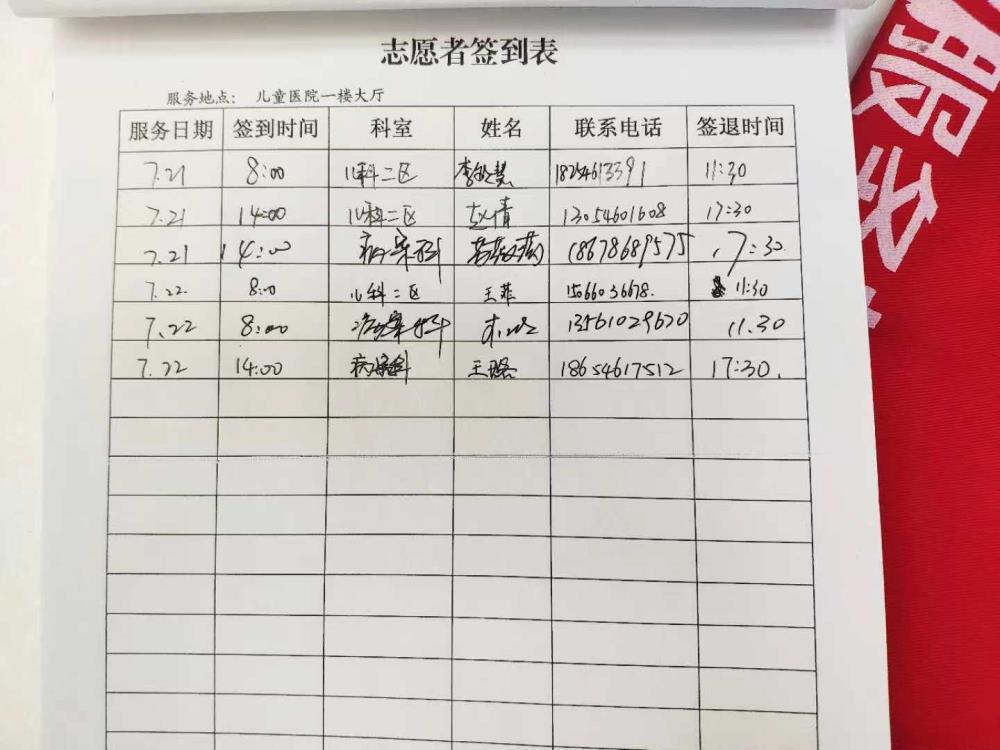 志愿者签到表
服务地点： 儿童医院一楼大厅
服务日期 签到时间 科室 姓名 联系电话 签退时间
7.21 8:00 儿科二区 李 慧 18254613391 11:30
7.21 14:00 儿科二区 赵倩 13054601608 17:30
7.21 14:00 病案科 18678689575 17:30
7.22 8:00 儿科二区 王菲 15066036678. 11:30
7.22 8:00 病案科 13561029620 11.30
7.22 14:00 病案科 王璐 18654617512 17:30.
服务